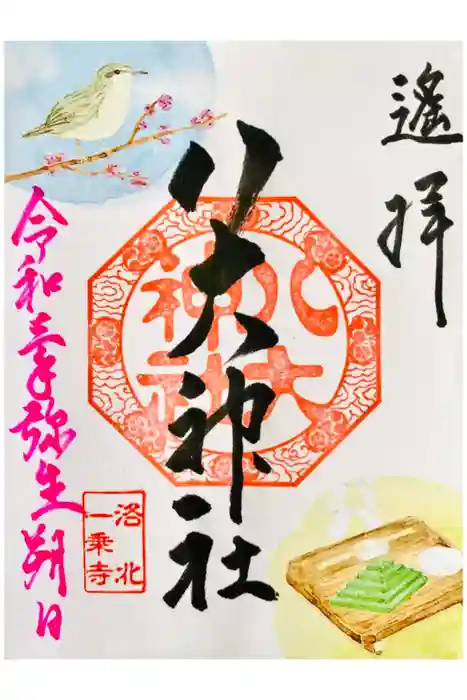 遙拝
八大神社
八大
神社
令和三年弥生朔日
洛北
一乗寺